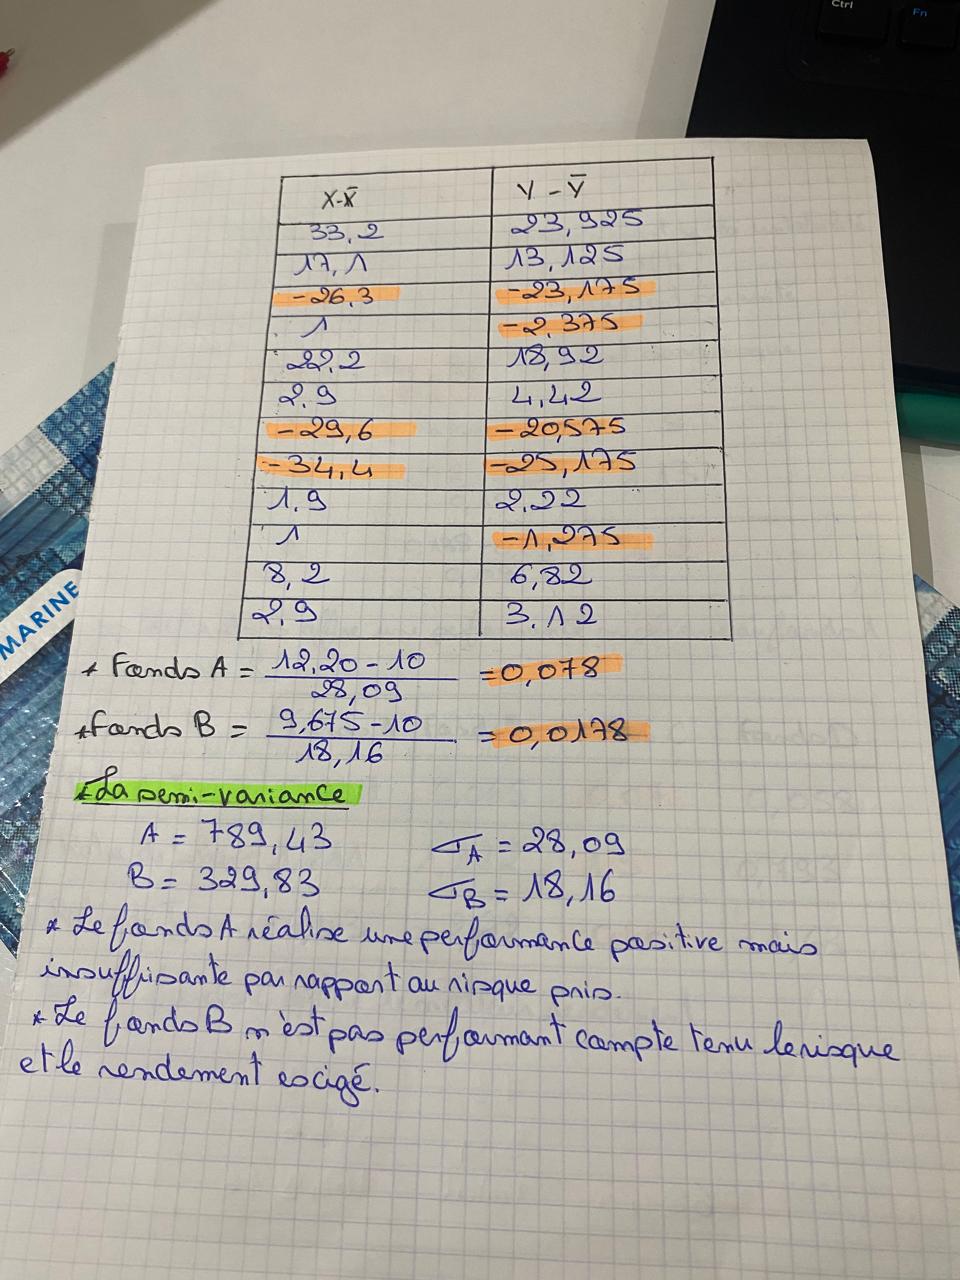 Ctrl
Fn
X-X̄ Y-Ȳ
33,2 23,925
17,1 13,125
-26,3 -23,175
1 -2,375
22,2 18,92
2,9 4,42
-29,6 -20,575
-34,4 -25,175
1,9 2,22
1 -1,275
8,2 6,82
2,9 3,12
* Fonds A = 12,20-10 / 28,09 = 0,078
* Fonds B = 9,675-10 / 18,16 = 0,0178
* La semi-variance
A = 789,43 σA = 28,09
B = 329,83 σB = 18,16
* Le fonds A réalise une performance positive mais
insuffisante par rapport au risque pris.
* Le fonds B n'est pas performant compte tenu le risque
et le rendement exigé.
MARINE